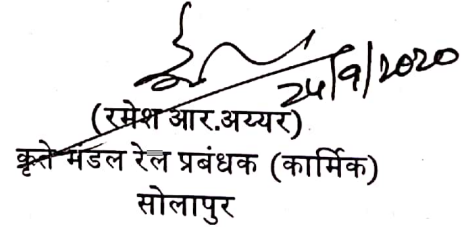 24/9/2020
(रमेश आर.अय्यर)
कृते मंडल रेल प्रबंधक (कार्मिक)
सोलापुर